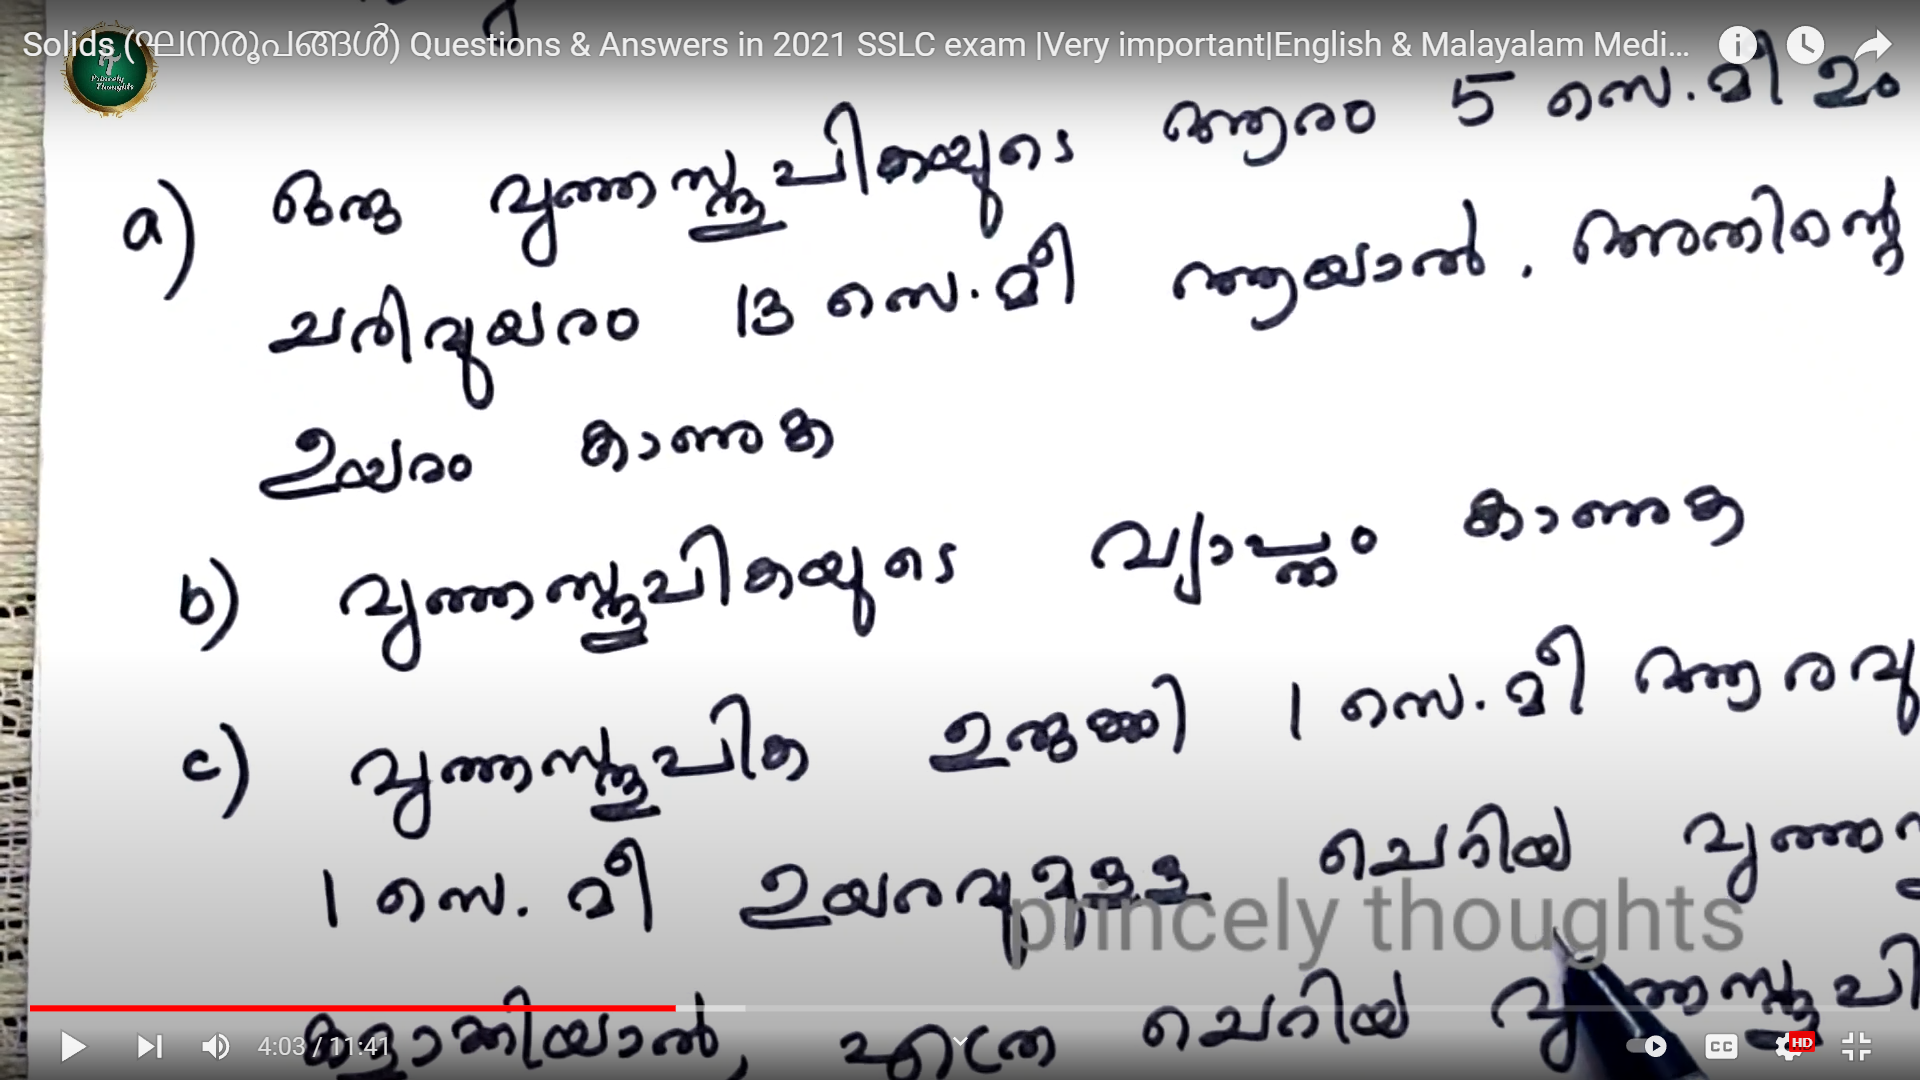 Solids (ഘനരൂപങ്ങൾ) Questions & Answers in 2021 SSLC exam |Very important|English & Malayalam Medi...
Princely
Thoughts
a) ഒരു വൃത്തസ്തൂപികയുടെ ആരം 5 സെ.മീ ഉം
ചരിവുയരം 13 സെ.മീ ആയാൽ. അതിന്റെ
ഉയരം കാണുക
b) വൃത്തസ്തൂപികയുടെ വ്യാപ്തം കാണുക
c) വൃത്തസ്തൂപിക ഉരുക്കി 1 സെ.മീ ആരവു
1 സെ. മീ ഉയരവുമുള്ള ചെറിയ
princely thoughts
കളാക്കിയാൽ, എത്ര ചെറിയ
4:03 / 11:41
CC
HD